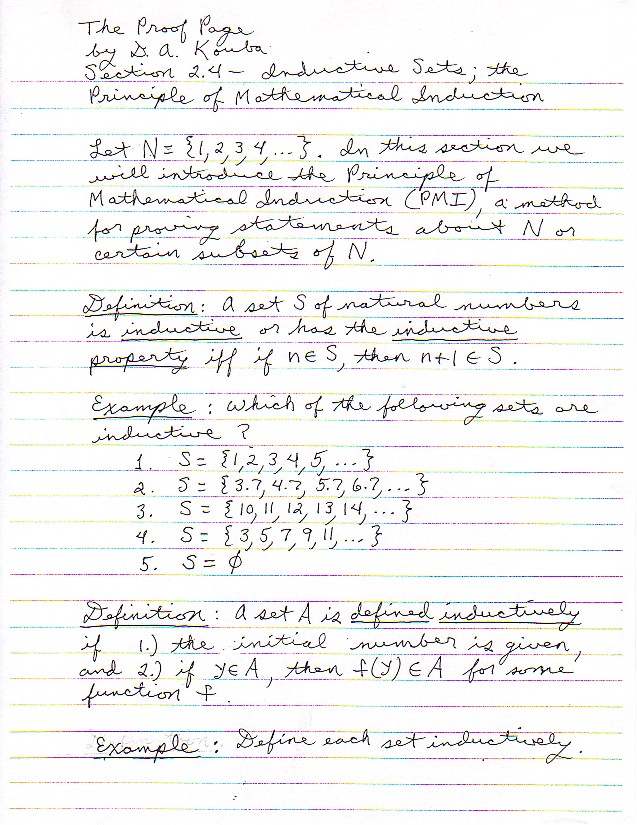 The Proof Page
by D. A. Kouba
Section 2.4 - Inductive Sets; the
Principle of Mathematical Induction
Let N = {1, 2, 3, 4, ...}. In this section we
will introduce the Principle of
Mathematical Induction (PMI), a method
for proving statements about N or
certain subsets of N.
Definition: A set S of natural numbers
is inductive or has the inductive
property iff if n ∈ S, then n+1 ∈ S.
Example: Which of the following sets are
inductive?
1. S = {1, 2, 3, 4, 5, ...}
2. S = {3.7, 4.7, 5.7, 6.7, ...}
3. S = {10, 11, 12, 13, 14, ...}
4. S = {3, 5, 7, 9, 11, ...}
5. S = ∅
Definition: A set A is defined inductively
if 1.) the initial number is given,
and 2.) if y ∈ A, then f(y) ∈ A for some
function f.
Example: Define each set inductively.